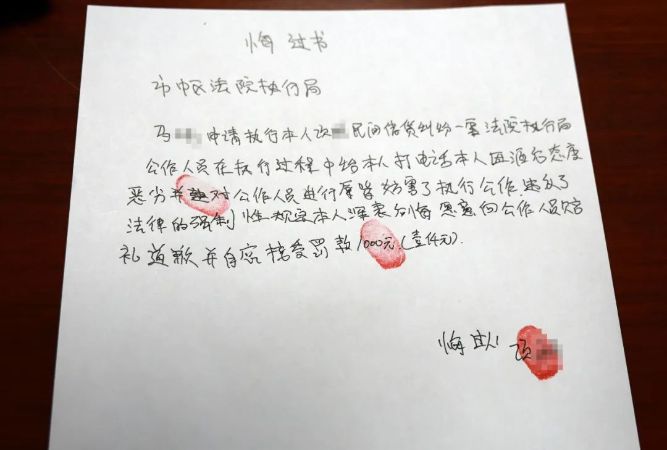 悔过书
市中区法院执行局
马 申请执行本人 民间借贷纠纷一案法院执行局
公作人员在执行过程中给本人打电话本人因酒后态度
恶劣并 对公作人员进行辱骂妨害了执行公作.违反了
法律的强制性规定本人深表 悔愿意向公作人员赔
礼道歉并自愿接受罚款1000元.(壹仟元).
悔过人